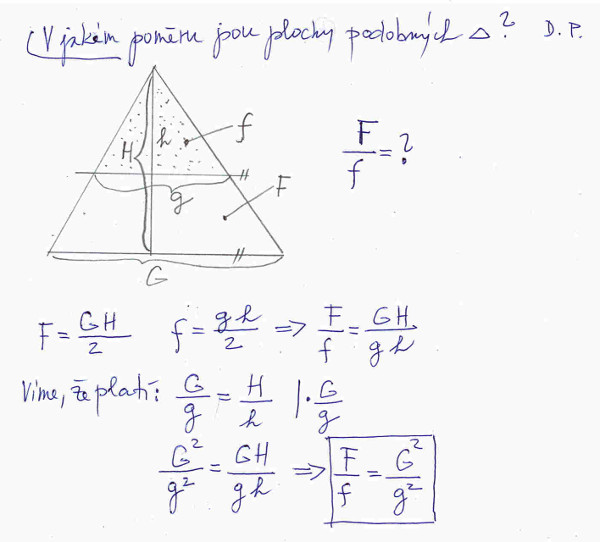 V jakém poměru jsou plochy podobných △? D. P.
H h f
F/f = ?
g F
G
F = GH/2 f = gh/2 => F/f = GH/gh
Víme, že platí: G/g = H/h |· G/g
G²/g² = GH/gh => F/f = G²/g²